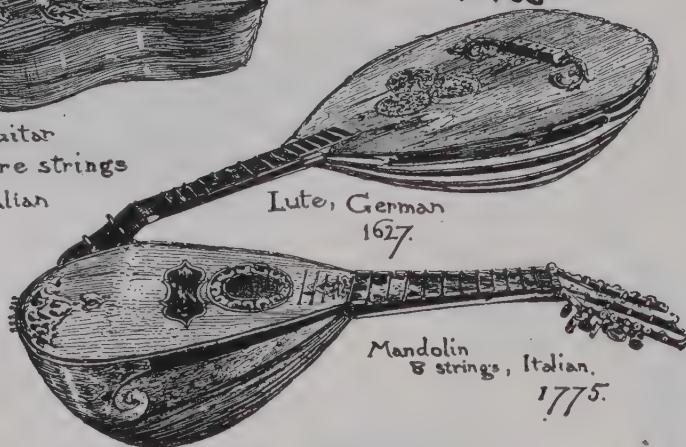 re strings
Lute, German
1627.
Mandolin
8 strings, Italian.
1775.